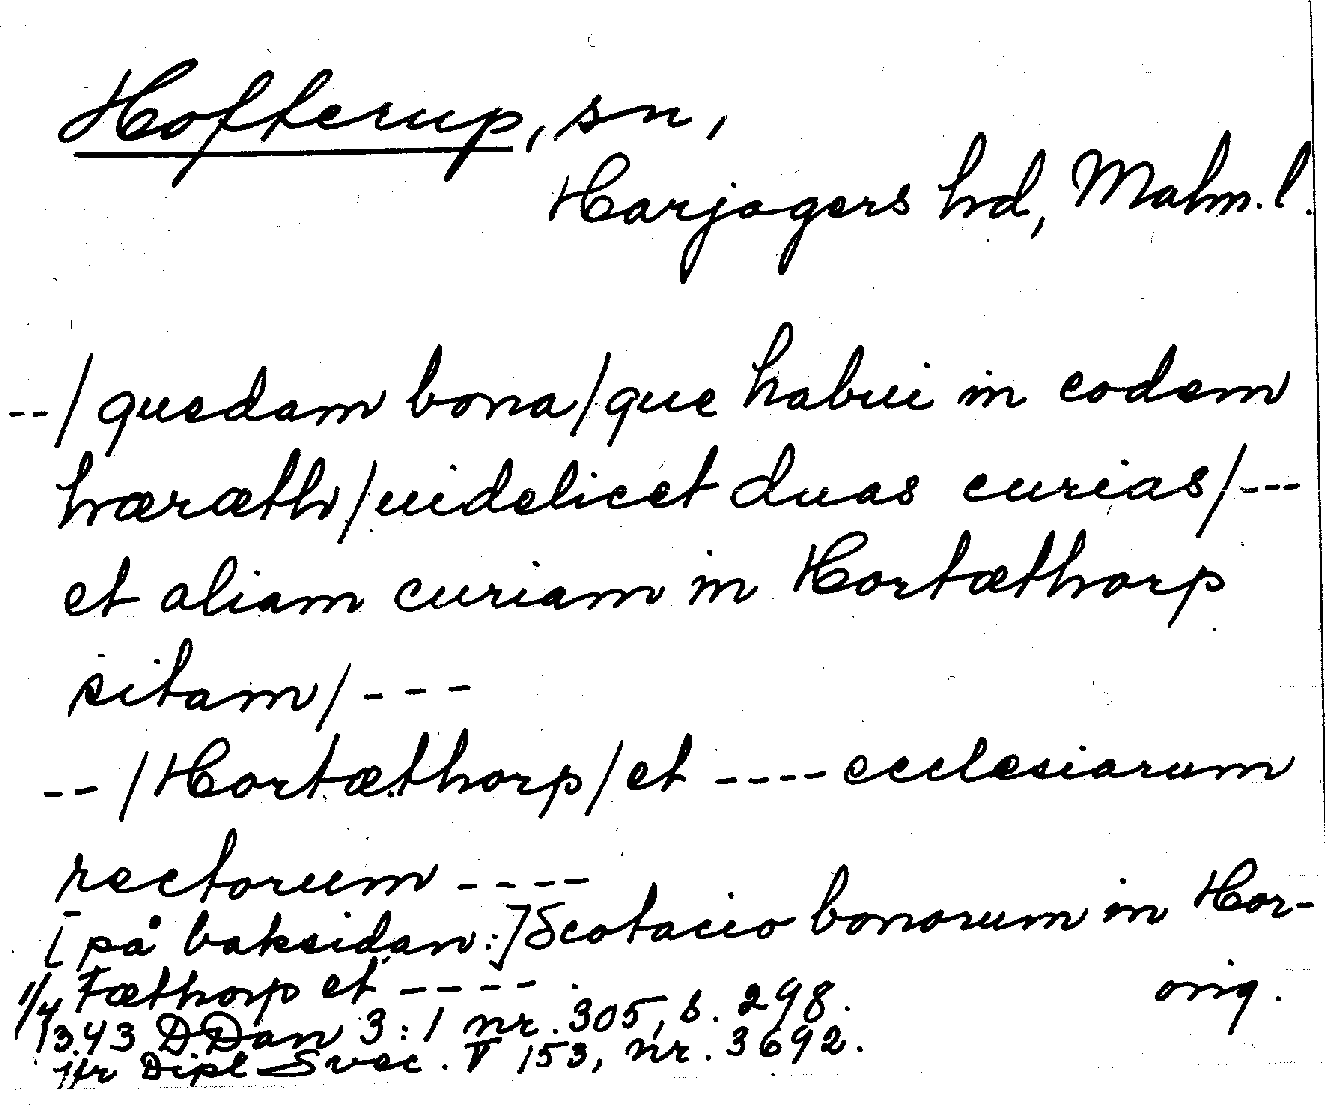 Hofterup, sn,
Harjagers hd, Malm. l.
--/ quedam bona / que habui in eodem
hæræth / uidelicet duas curias / ---
et aliam curiam in Hortæthorp
sitam / ---
-- / Hortæthorp / et ---- ecclesiarum
rectorum ----
[på baksidan:] Scotacio bonorum in Hor-
tæthorp et ---- . orig.
1/4 1343 DDan 3:1 nr. 305, s. 298.
jfr Dipl Svec. V 153, nr. 3692.